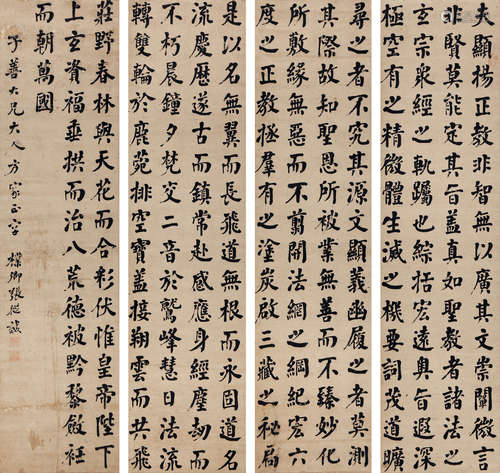 夫顯揚正教非智無以廣其文崇闡微言
非賢莫能定其旨蓋真如聖教者諸法之
玄宗衆經之軌躅也綜括宏遠奧旨遐深
極空有之精微體生滅之機要詞茂道曠
尋之者不究其源文顯義幽履之者莫測
其際故知聖恩所被業無善而不臻妙化
所敷緣無惡而不翦開法網之綱紀宏六
度之正教拯羣有之塗炭啟三藏之秘扃
是以名無翼而長飛道無根而永固道名
流慶歷遂古而鎮常赴感應身經塵劫而
不朽晨鐘夕梵交二音於鷲峰慧日法流
轉雙輪於鹿菀排空寶蓋接翔雲而共飛
莊野春林與天花而合彩伏惟皇帝陛下
上玄資福垂拱而治八荒德被黔黎斂衽
而朝萬國
子善大兄大人方家正字
張